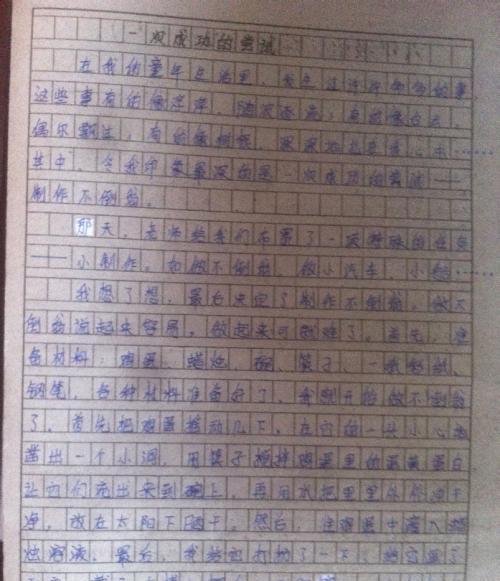 一次成功的尝试
在我的童年生活里，发生过许许多多的事，
这些事有的像浮萍，随波逐流；有的像白云，
偶尔飘过；有的像树根，深深地扎在我心中……
其中，令我印象最深的是一次成功的尝试——
制作不倒翁。
那天，老师给我们布置了一项特殊的任务
——小制作。如做不倒翁、做小汽车、小船……
我想了想，最后决定了制作不倒翁。做不
倒翁说起来容易，做起来可就难了。首先，准
备材料：鸡蛋、蜡烛、碗、筷子、一张彩纸、
钢笔，各种材料准备好了，我就开始做不倒翁
了。首先把鸡蛋摇动几下，在它的一头小心地
凿出一个小洞，用筷子搅拌鸡蛋里的蛋黄蛋白
让它们流出来到碗上，再用水把里里外外冲干
净，放在太阳下晒干。然后，往鸡蛋中滴入蜡
烛溶液。最后，我给它打扮了一下：给它画了